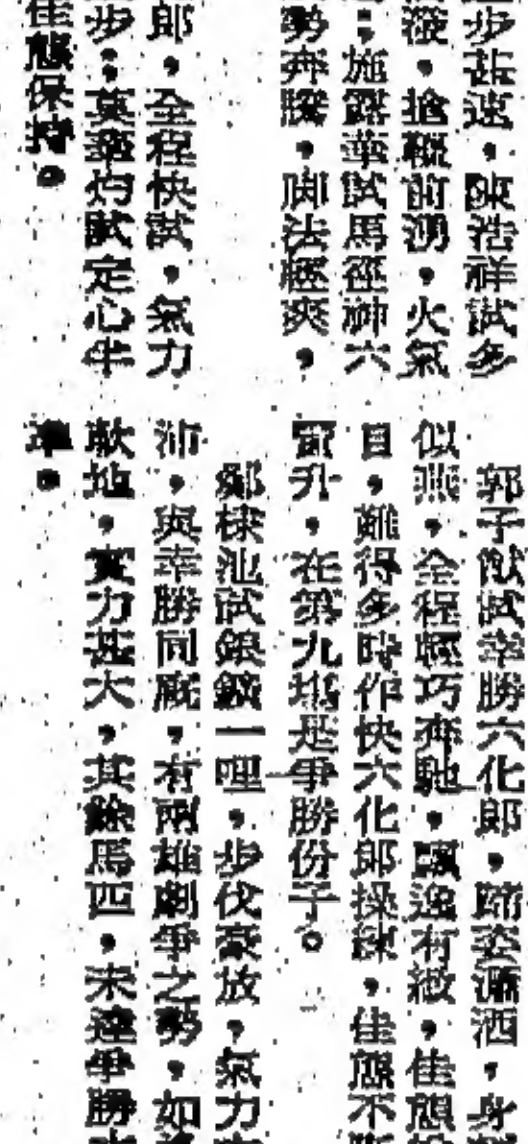 步甚速,陳浩祥試多
潑,搶韁前湧,火氣
;施露華試馬徑神六
勢奔騰,脚法輕爽,
郎,全程快試,氣力
步;莫華灼試定心牛
佳態保持。
郭子猷試幸勝六化郎,蹄姿瀟洒,身
似燕,全程輕巧奔馳,飄逸有緻,佳態
目,難得多時作快六化郎操練,佳態不
雷升,在第九塲是爭勝份子。
鄭棣池試銀鏡一哩,步伐豪放,氣力
沛,與幸勝同厩,有兩雄劇爭之勢,如
軟地,實力甚大,其餘馬匹,未達爭勝
準。